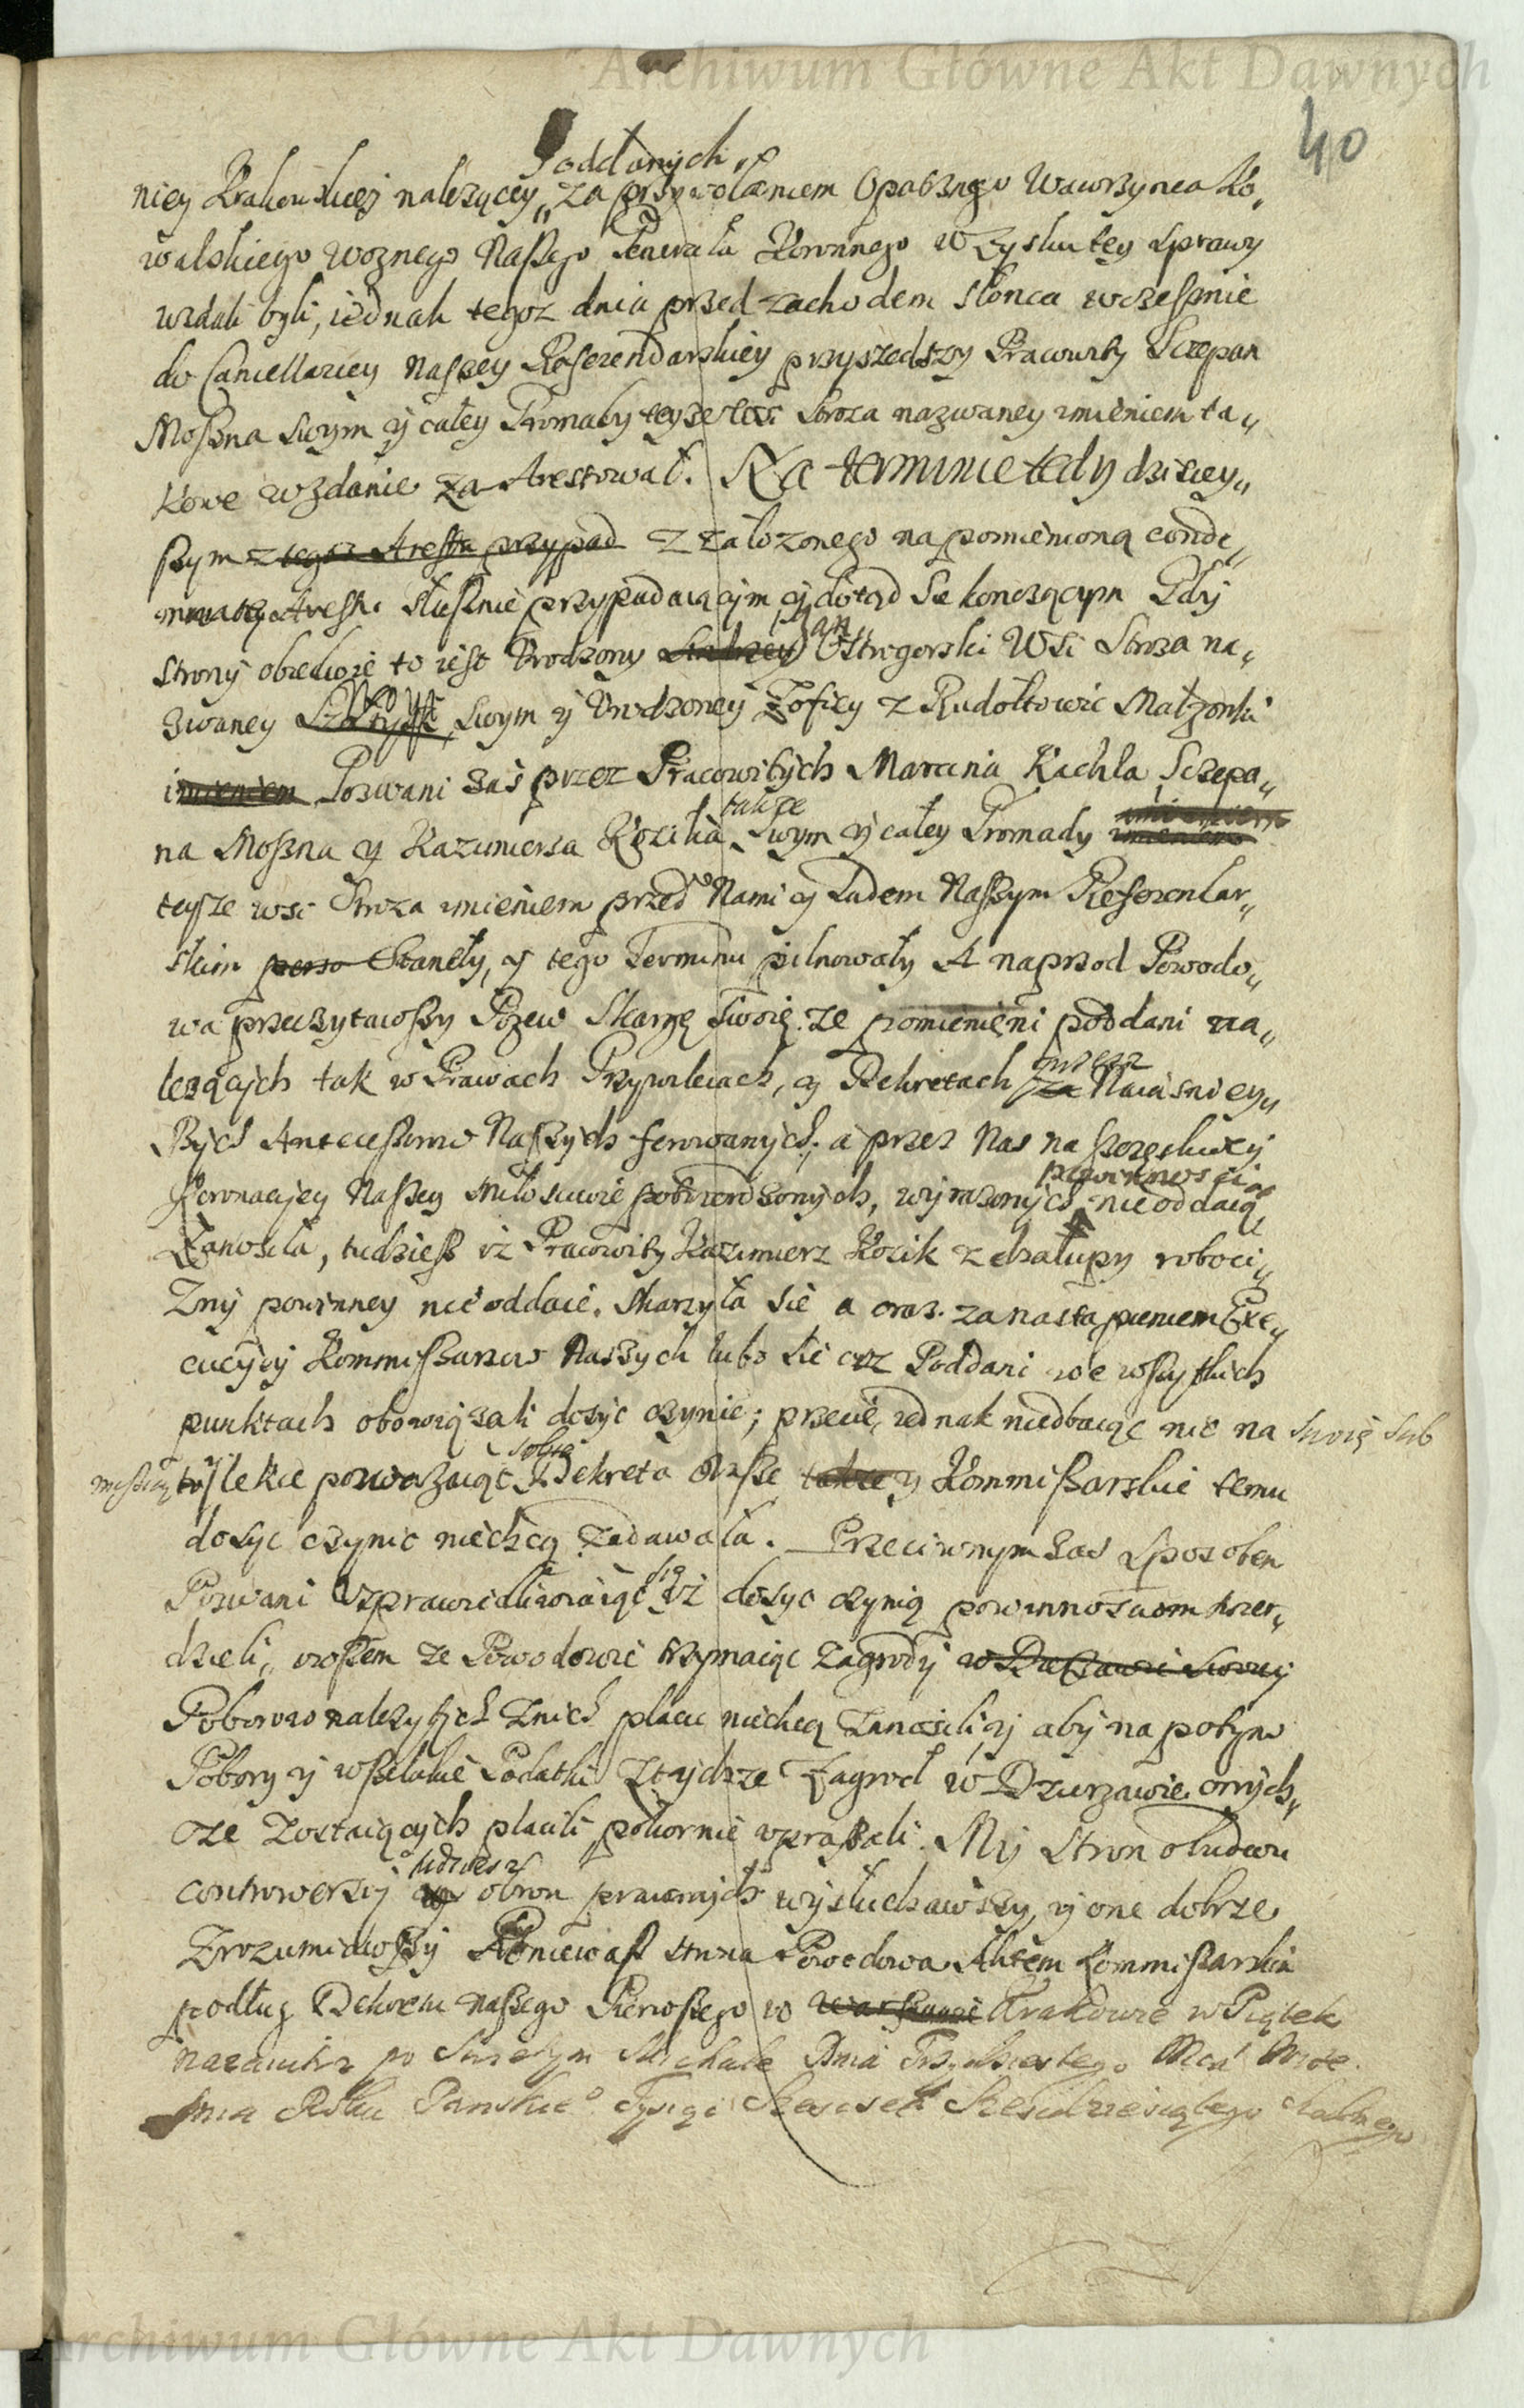 Archiwum Główne Akt Dawnych
40
Poddanych
niey Krakowskiey należącey,, za przywołaniem Opatrznego Wawrzynca Ko,,
walskiego woznego Naszego Generała Koronnego w Zysku tey Sprawy
wzdali byli, iednak tegoz dnia przed zachodem słonca wczesznie
do Cancellariey Naszey Referendarskiey przyszedszy Pracowity Sczepan
Moszna Swym y całey Gromady teyze wsi Stroza nazwaney imieniem ta,,
kowe wzdanie za Arestował. Na terminie tedy dzisiey,,
szym z tegoz Arestu przypad z załozonego na pomienioną conde,,
Arest. słusznie przypadaiącym y dotąd Se konczącym Gdy
Jan
strony obiedwie to iest Urodzony Andrzey Ostrogorski Wsi Stroza na,,
zwaney Swym y Urodzoney Zofiey z Rudołtowic Małzonki
imieniem Pozwani zaś przez Pracowitych Marcina Kachla, Sczepa,,
takze imieniem
na Moszna y Kazimierza Kozika Swym y całey Gromady imieniem
teyze wsi Stroza imieniem przed Nami y Sądem Naszym Referendar,,
skim perso Stanęły, y tego Terminu pilnowały A naprzod Powodo,,
wa przeczytawszy Pozew Skargę Swoię ze pomienieni poddani na,,
przez
lezących tak w Prawach Przywileiach, y Dekretach za Naiasniey,,
szych Antecessorow Naszych ferowanych, a przez Nas na szczęsliwey
powinnosci
Koronacyey Naszey Miłosciwie potwierdzonych, wyrazonych nie oddaią
Zanosiła, tudziesz iż Pracowity Kazimierz Kozik z chałupy roboci,,
zny powinney nie oddaie. Skarzyła Sie a oraz za nastąpieniem Exe,,
cucyey Kommissarzow Naszych lubo Sie ciz Poddani we wszytkich
punktach obowiązali dosyc czynić; przecie iednak niedbaiąc nic na Swoię Sub
sobie
missią lekce powazaiąc Dekreta Nasze takze y Kommissarskie temu
dosyc czynic niechcą Zadawała. Przeciwnym zas Sposobem
się
Pozwani Usprawiedliwiaiąc iż dosyc czynią powinnosciom twier,,
dzieli, ze Powodowie trzymaiąc Zagrody
Poborow nalezytych z nich płacic niechcą Zanosili, y aby na potym
Pobory y wszelakie Podatki z tychze Zagrod w Dzierzawie onych,,
ze zostaiących płacili pokornie upraszali. My Stron obudwu
tudziesz
controwersiy y obron prawnych wysłuchawszy, y one dobrze
Zrozumiawszy Poniewasz strona Powodowa Aktem Kommissarskim
podług Dekretu naszego Pierwszego w Warszawie Krakowie w Piątek
nazaiutrz po Swiętym Michale Dnia Trzydziestego Wrze
snia Roku Panskiego Tysiąc Szescset Szescdziesiątego
Archiwum Główne Akt Dawnych